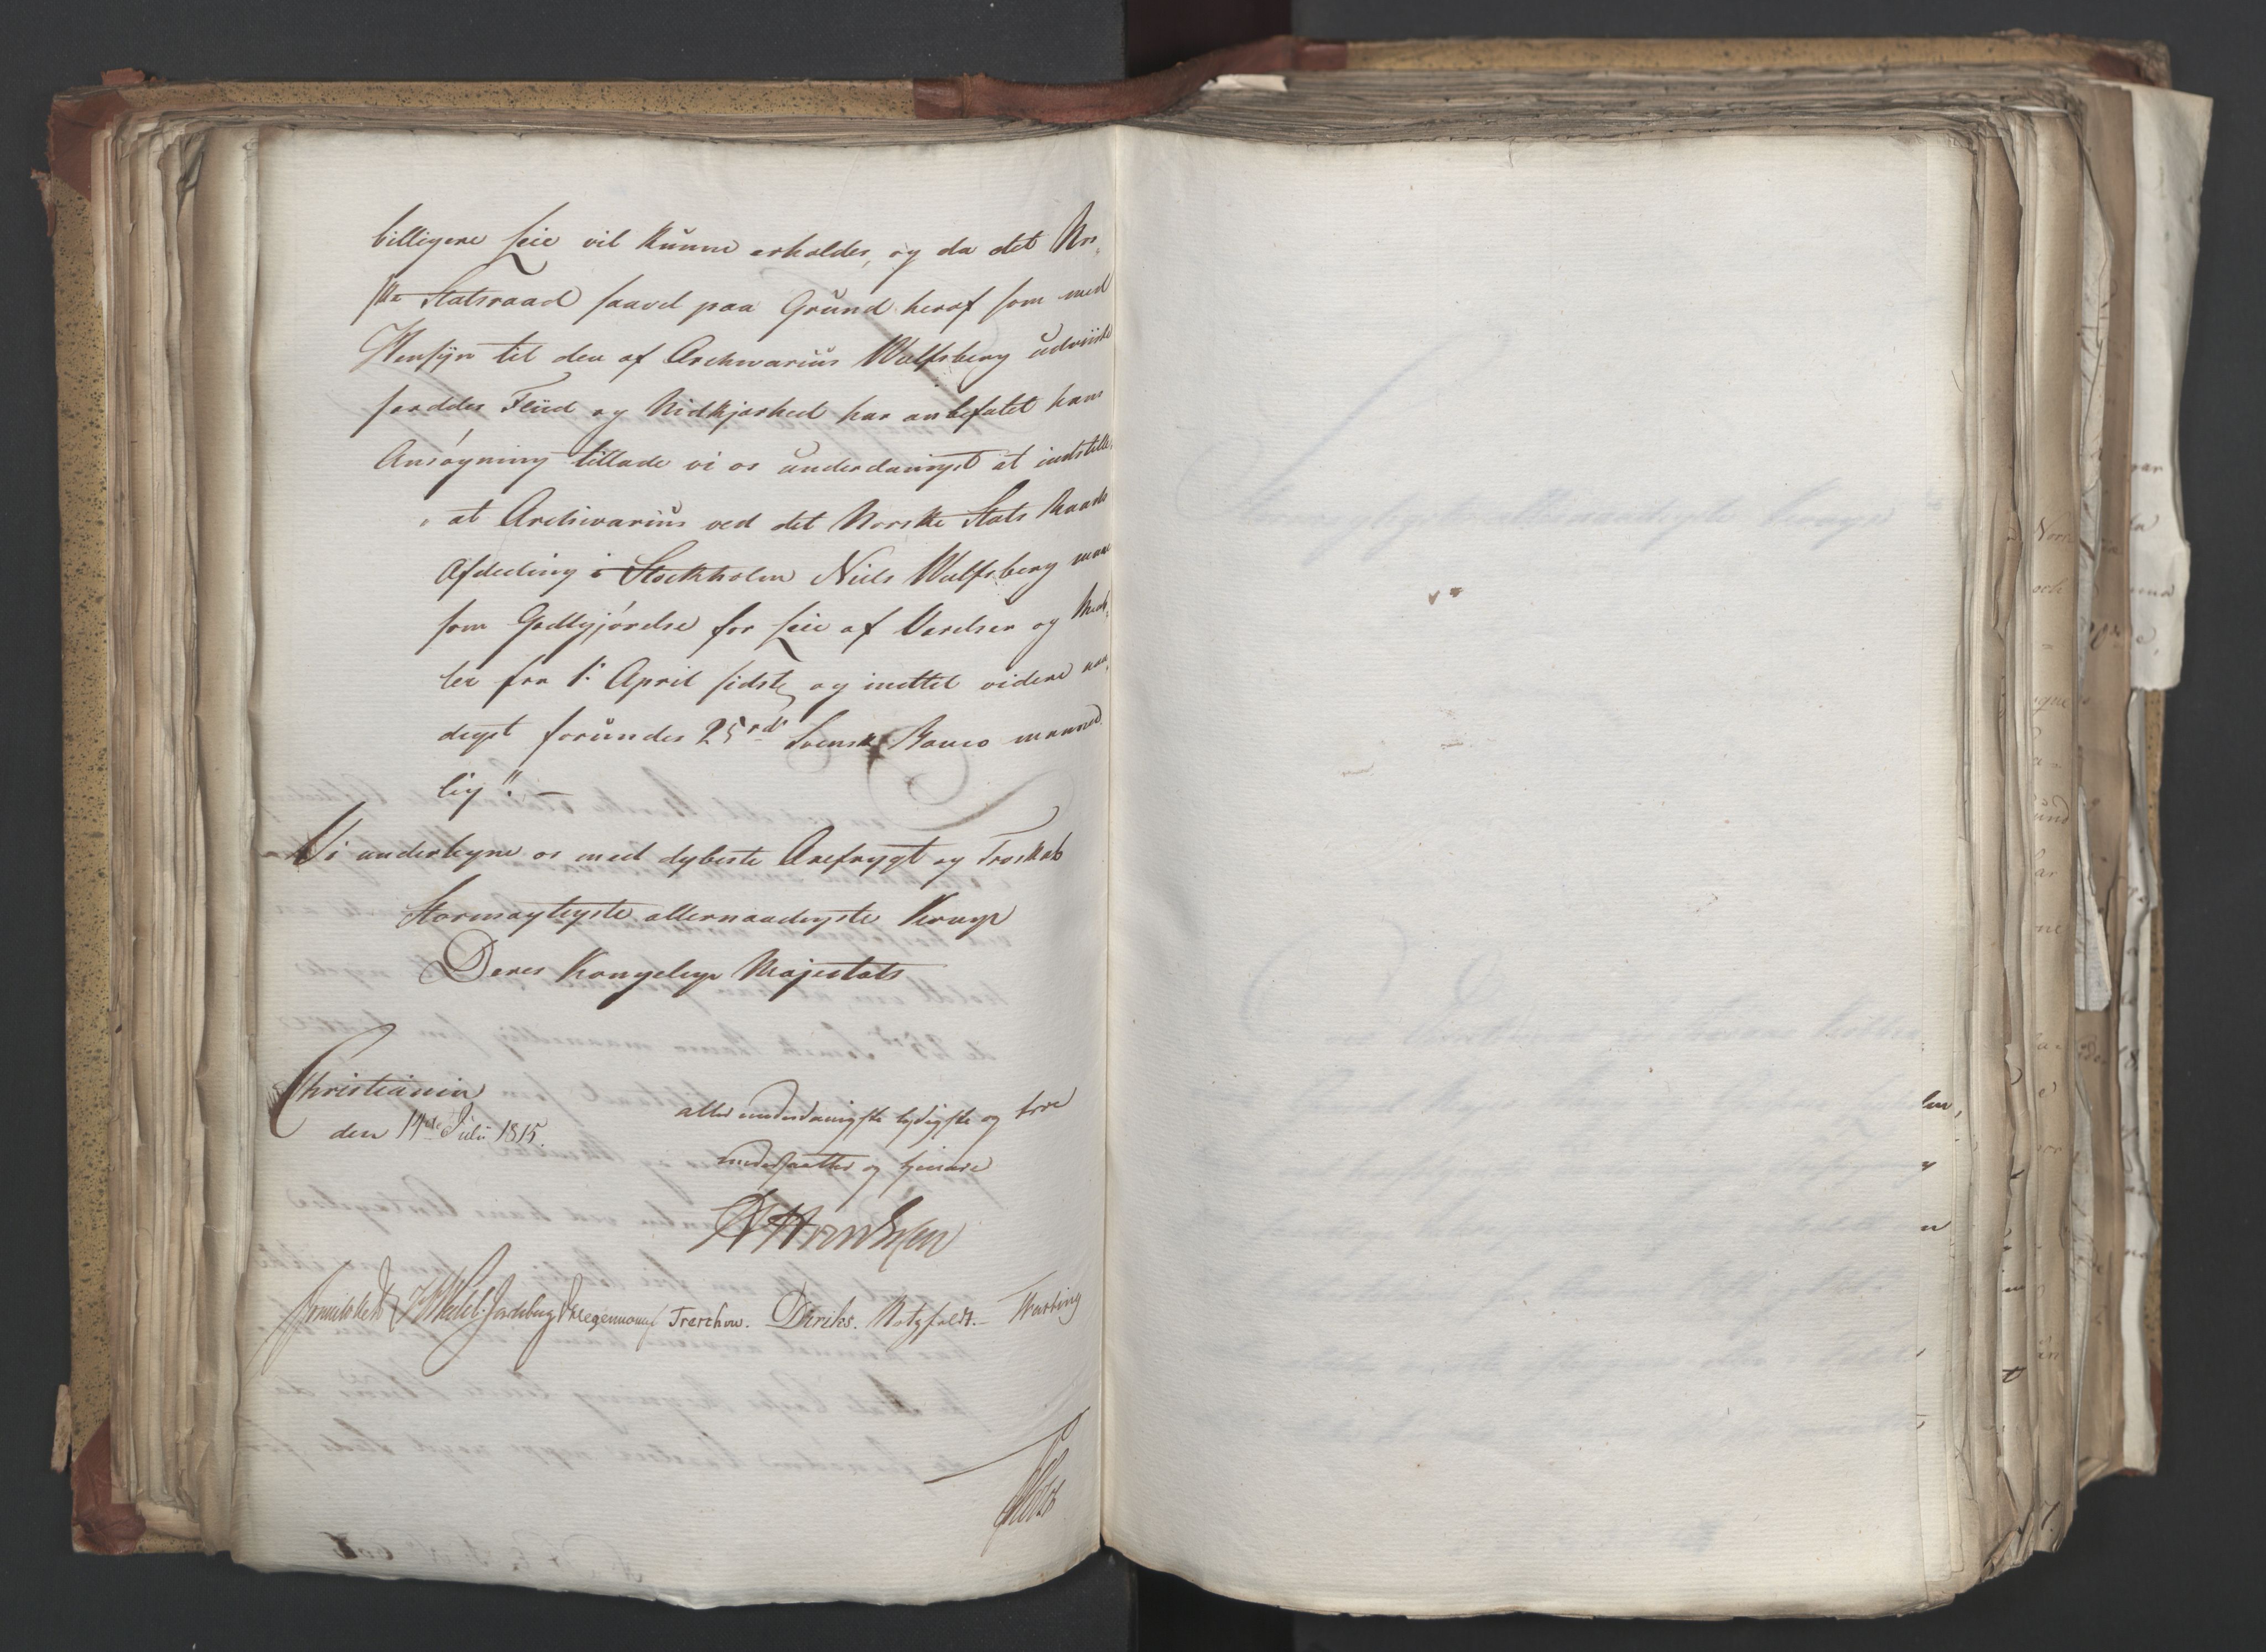 billigere Leie vil kunne erholdes, og da det Nor-
ske Statsraad saavel paa Grund heraf som med
Hensyn til den af Archivarius Wulfsberg udviiste
særdeles Fliid og Nidkjærhed har anbefalet hans
Ansøgning tillade vi os underdanigst at indstille,
" at Archivarius ved det Norske Stats Raads
Afdeeling i Stockholm Niels Wulfsberg maae
som Godtgjørelse for Leie af Værelser og Meub-
ler fra 1: April sidst, og indtil videre naa-
digst forundes 25 rd Svensk Banco maaned
lig". -
Vi undertegne os med dybeste Ærefrygt og Troskab
Stormægtigste allernaadigste Konge
Deres Kongelige Majestæts
Christiania
den 14de Julii 1815.
allerunderdanigste lydigste og troe
undersaatter og tjenere
Sommerhielm Wedel-Jarlsberg Kregenmoug Treschow. Diriks. Motzfeldt. -